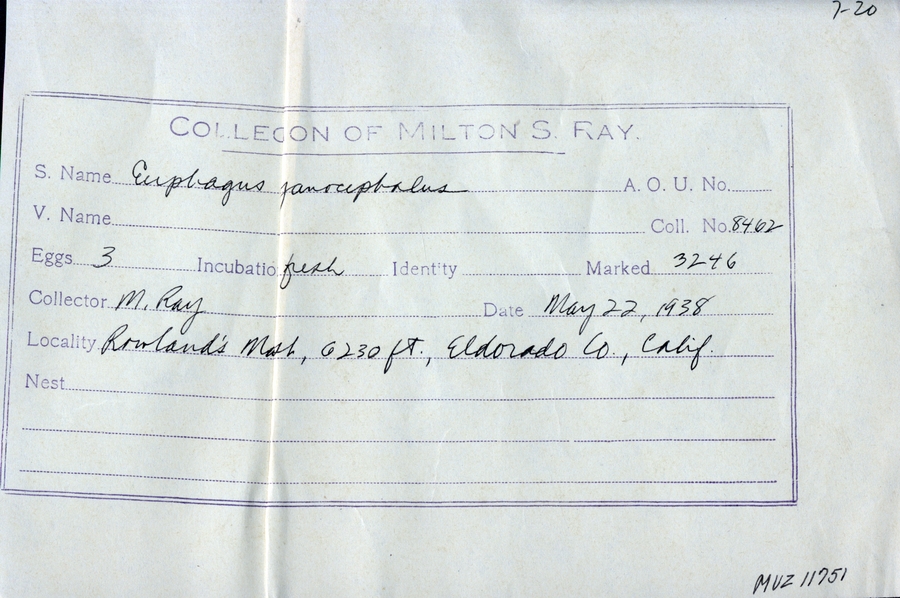 7-20
COLLECON OF MILTON S. RAY.
S. Name Euphagus janocephalus A. O. U. No.
V. Name Coll. No. 8462
Eggs 3 Incubatio fresh Identity Marked 3246
Collector M. Ray Date May 22, 1938
Locality Rowland's Msh, 6230 ft., Eldorado Co., Calif.
Nest
MVZ 11751